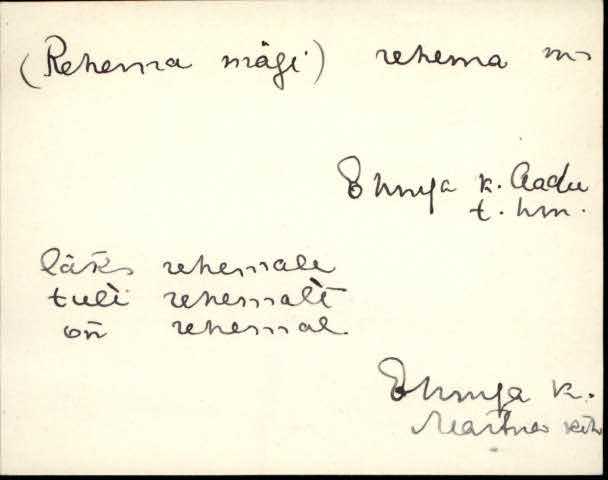 (Rehema mägi) rehema m
Ehmja k. Aadu
t. hm.
läks rehemale
tuli rehemalt
on rehemal
Ehmja k.
Martna kih